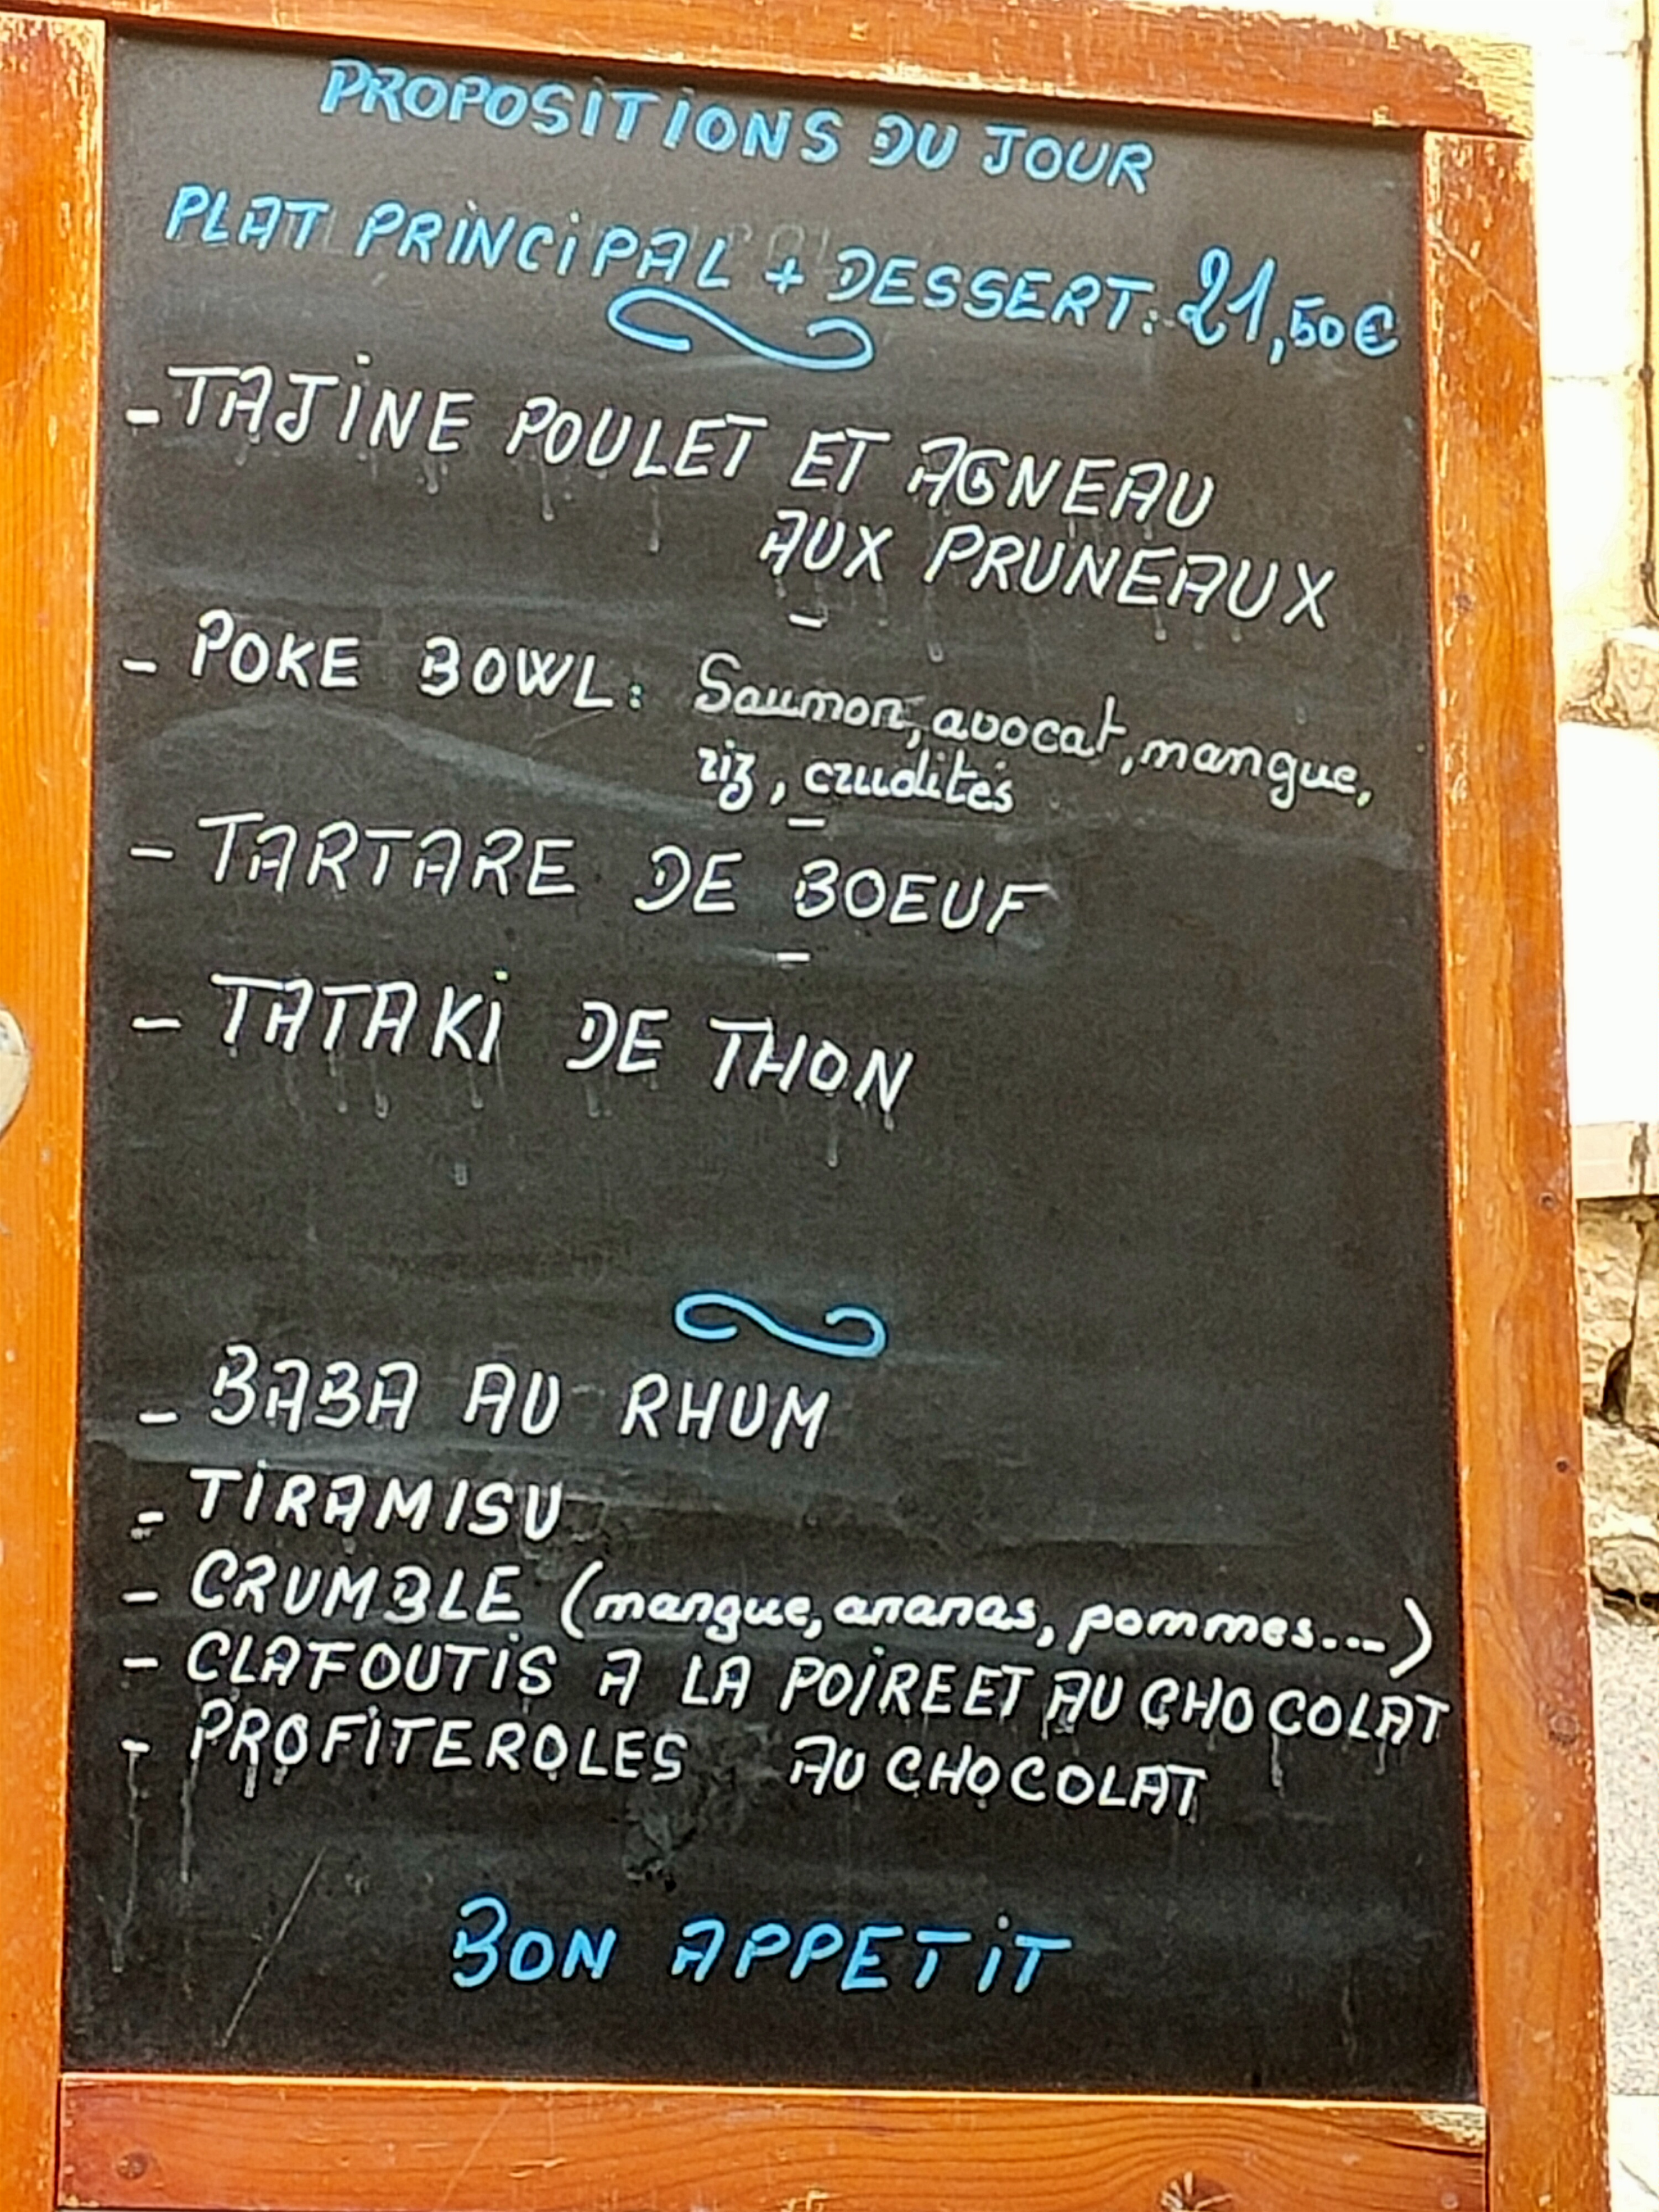 PROPOSITIONS DU JOUR
PLAT PRINCIPAL + DESSERT: 21,50€
- TAJINE POULET ET AGNEAU
AUX PRUNEAUX
-
- POKE BOWL: Saumon, avocat, mangue,
riz, crudités
-
- TARTARE DE BOEUF
-
- TATAKI DE THON
- BABA AU RHUM
- TIRAMISU
- CRUMBLE (mangue, ananas, pommes...)
- CLAFOUTIS A LA POIRE ET AU CHOCOLAT
- PROFITEROLES AU CHOCOLAT
BON APPETIT